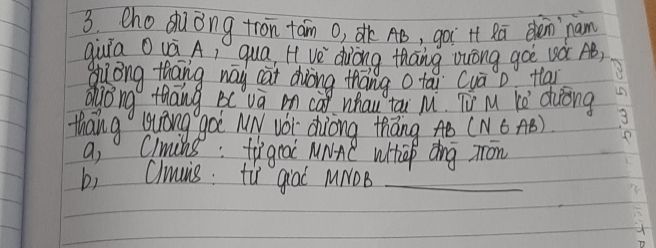 3. Cho đường tròn tâm O, đk AB, gọi H là điểm nằm
giữa O và A, qua H vẽ đường thẳng vuông góc với AB,
đường thẳng này cắt đường thẳng O tại C và D. Hai
đường thẳng BC và cắt nhau tại M. Từ M kẻ đường
thẳng vuông góc MN với đường thẳng AB (N ∈ AB)
a, C/minh : tứ giác MNAC nttiếp đng tròn
b, C/minh : tứ giác MNDB